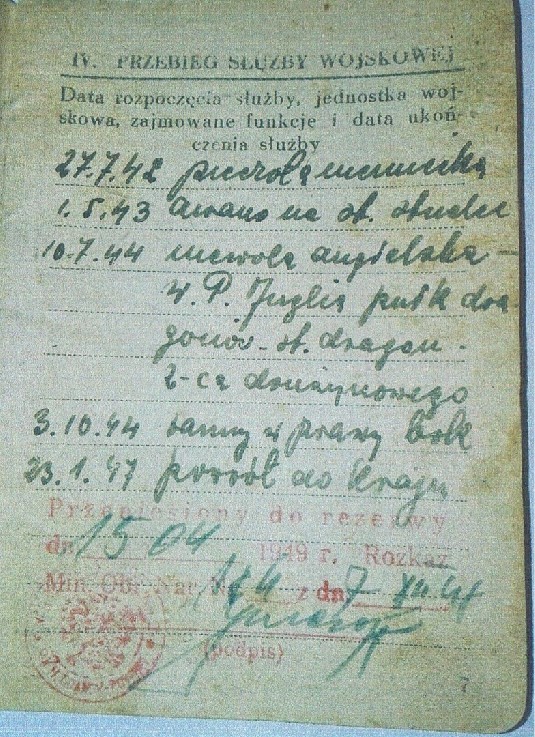 IV. PRZEBIEG SŁUŻBY WOJSKOWEJ
Data rozpoczęcia służby, jednostka woj-
skowa, zajmowane funkcje i data ukoń-
czenia służby
27.7.42 niemiecka
1.5.43 awans na st.
10.7.44 niewola angielska –
4. P. pułk dra
gonów – st. dragon –
z-ca drużynowego
3.10.44 ranny w prawy bok
23.1.47 powrót do Kraju
Przeniesiony do rezerwy
dn 15 04 1949 r. Rozkaz
Min. Obr. Nar. Nr z dn 7
(podpis)
7